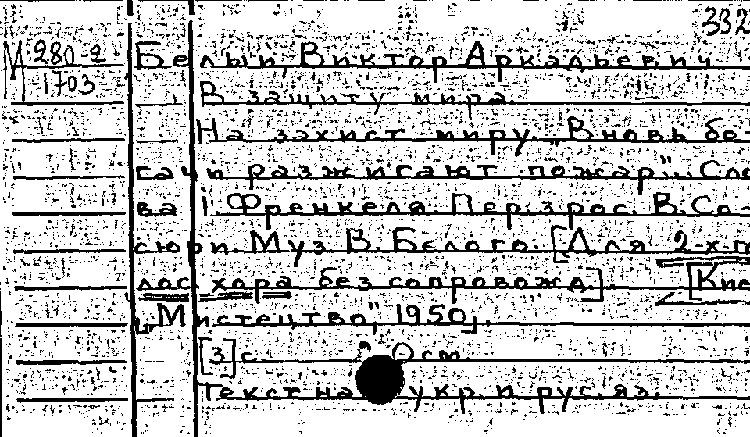 332
М 280-2
1703
Белый, Виктор Аркадьевич
В защиту мира.
На захист миру. „Вновь бо-
гачи разжигают пожар"... Сло-
ва І. Френкеля. Пер. з рос. В. Со-
сюри. Муз. В. Белого. [Для 2-х-го
лос. хора без сопровожд.] [Кие
„Мистецтво", 1950].
[3] с. см.
Текст на укр. и рус. яз.